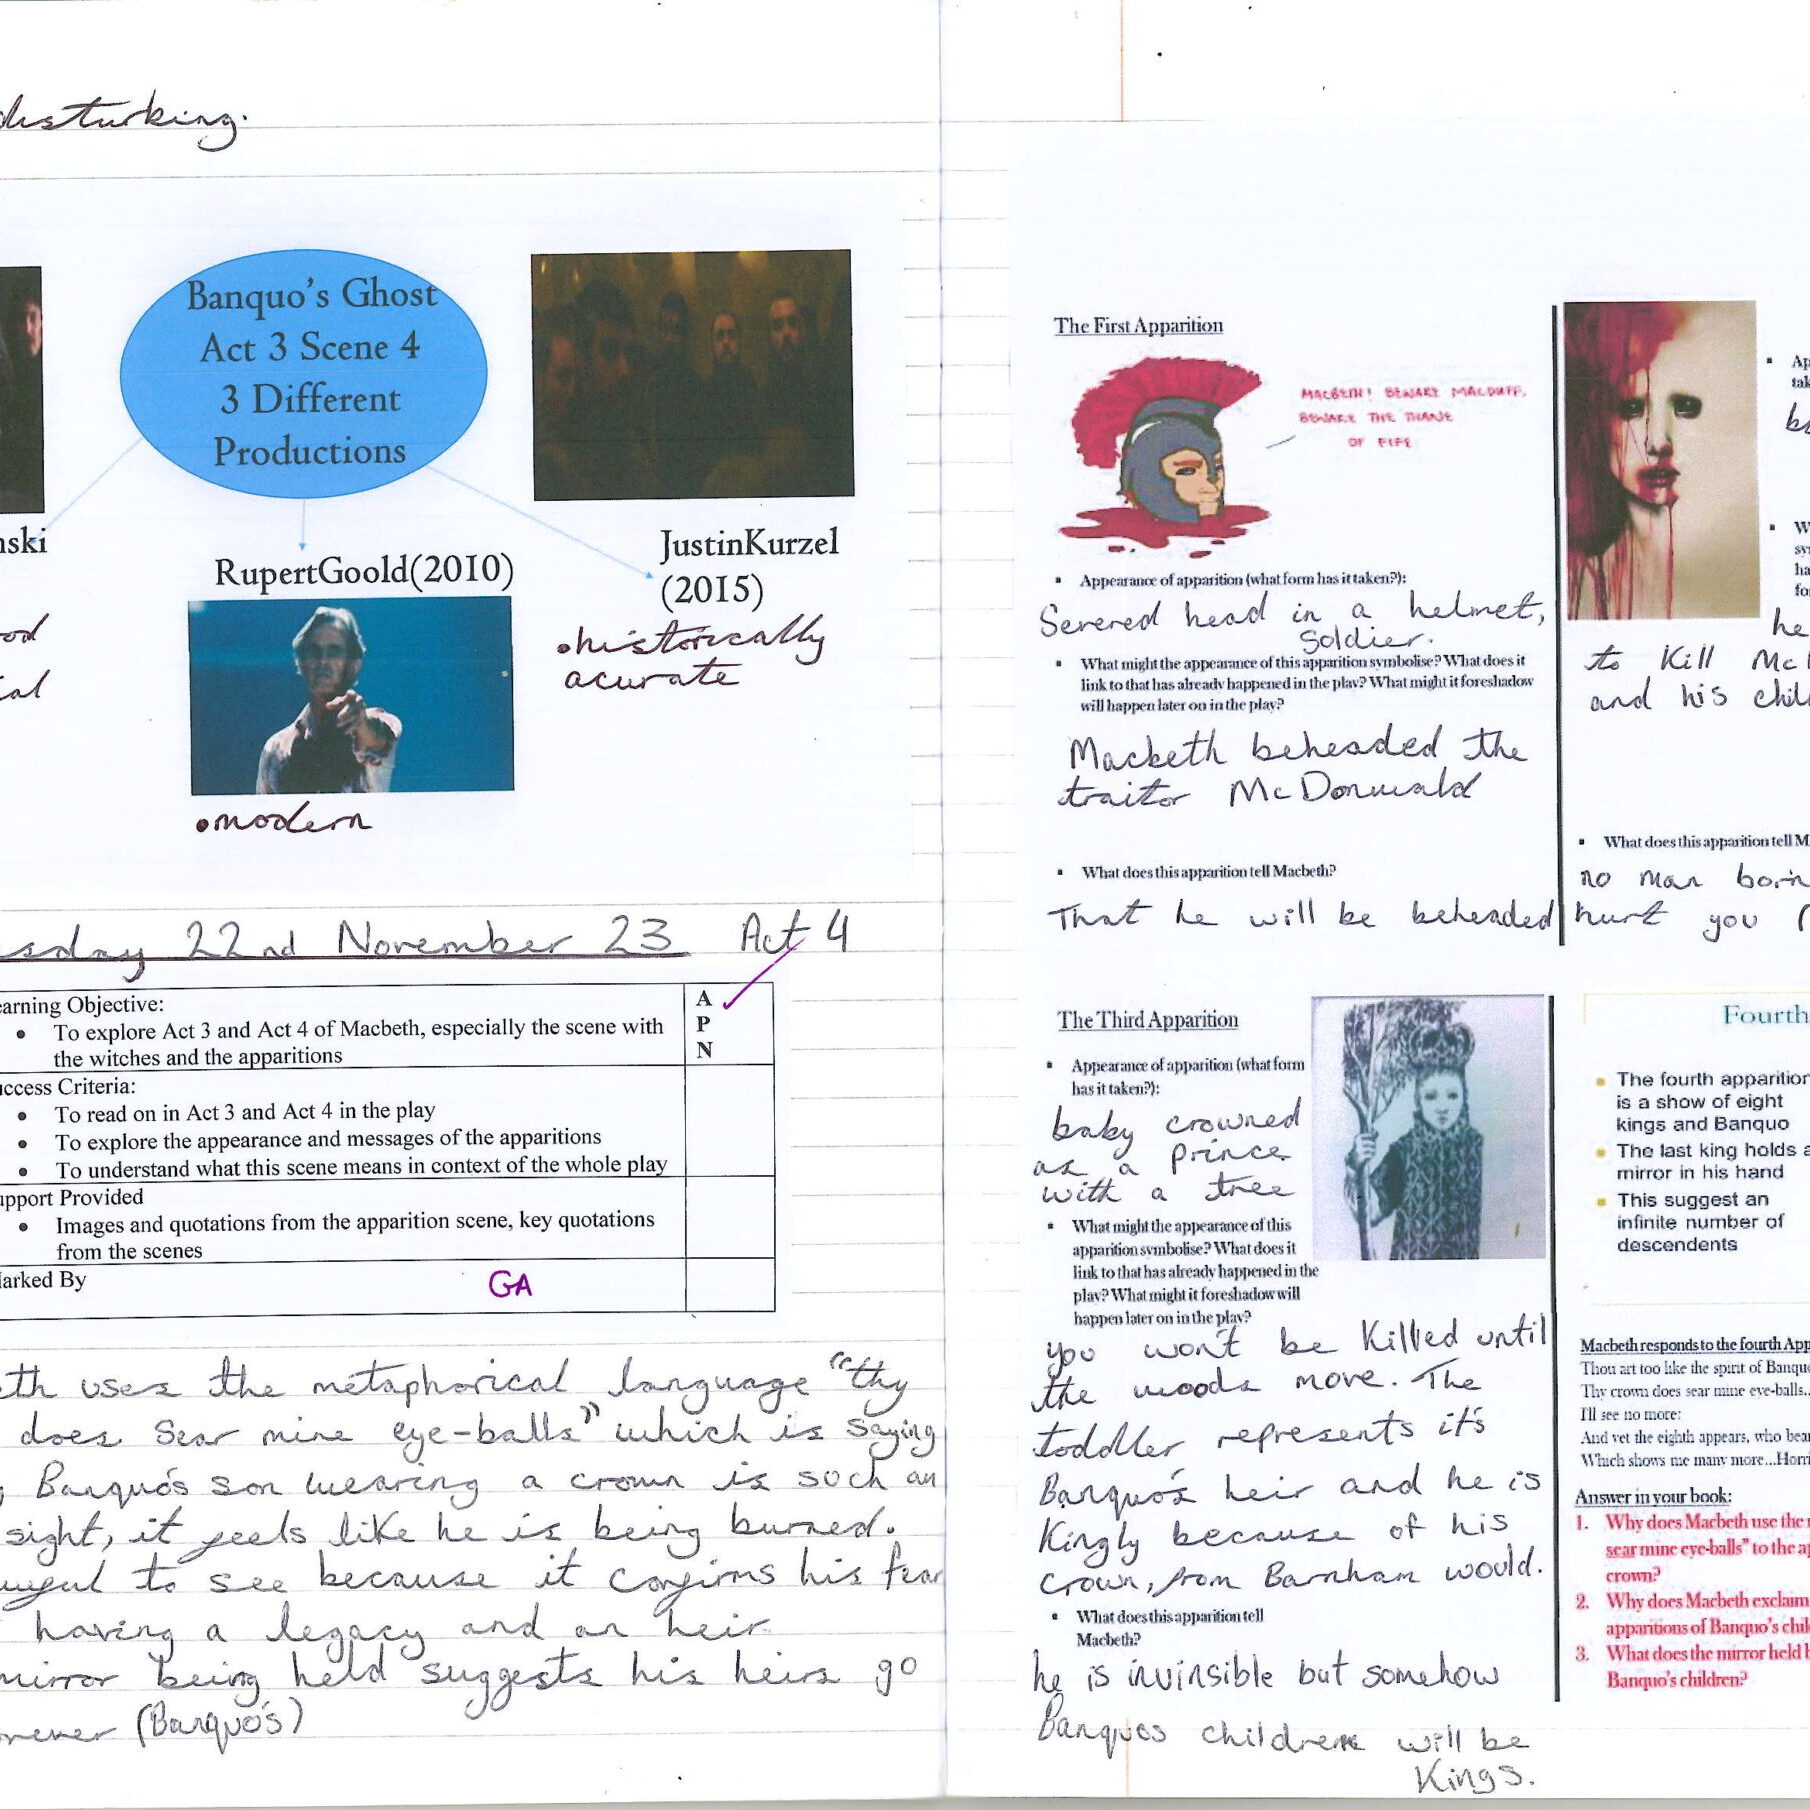 disturbing.
Banquo's Ghost
Act 3 Scene 4
3 Different
Productions
nski
RupertGoold(2010)
JustinKurzel
(2015)
•historically
acurate
•modern
sday 22nd November 23 Act 4
earning Objective:
• To explore Act 3 and Act 4 of Macbeth, especially the scene with
the witches and the apparitions
A
P
N
uccess Criteria:
• To read on in Act 3 and Act 4 in the play
• To explore the appearance and messages of the apparitions
• To understand what this scene means in context of the whole play
upport Provided
• Images and quotations from the apparition scene, key quotations
from the scenes
Marked By GA
eth uses the metaphorical language "thy
does sear mine eye-balls" which is saying
Banquo's son wearing a crown is such an
sight, it feels like he is being burned.
to see because it confirms his fear
having a legacy and an heir.
mirror being held suggests his heirs go
(Banquo's)
The First Apparition
MACBETH! BEWARE MACDUFF,
BEWARE THE THANE
OF FIFE
▪ Appearance of apparition (what form has it taken?):
Severed head in a helmet,
Soldier.
▪ What might the appearance of this apparition symbolise? What does it
link to that has already happened in the play? What might it foreshadow
will happen later on in the play?
Macbeth beheaded the
traitor McDonwald
▪ What does this apparition tell Macbeth?
That he will be beheaded
he
to Kill
and his chil
▪ What does this apparition tell M
no man born
hurt you
The Third Apparition
▪ Appearance of apparition (what form
has it taken?):
baby crowned
as a prince
with a tree
▪ What might the appearance of this
apparition symbolise? What does it
link to that has already happened in the
play? What might it foreshadow will
happen later on in the play?
you won't be Killed until
the woods move. The
toddler represents it's
Banquo's heir and he is
Kingly because of his
crown, from Barnham would.
▪ What does this apparition tell
Macbeth?
he is invinsible but somehow
Banquos children will be
Kings.
Fourth
▪ The fourth apparition
is a show of eight
kings and Banquo
▪ The last king holds a
mirror in his hand
▪ This suggest an
infinite number of
descendents
Macbeth responds to the fourth App
Thou art too like the spirit of Banquo
Thy crown does sear mine eye-balls...
I'll see no more:
And yet the eighth appears, who bear
Which shows me many more...Horri
Answer in your book:
1. Why does Macbeth use the
sear mine eye-balls" to the ap
crown?
2. Why does Macbeth exclaim
apparitions of Banquo's chil
3. What does the mirror held b
Banquo's children?